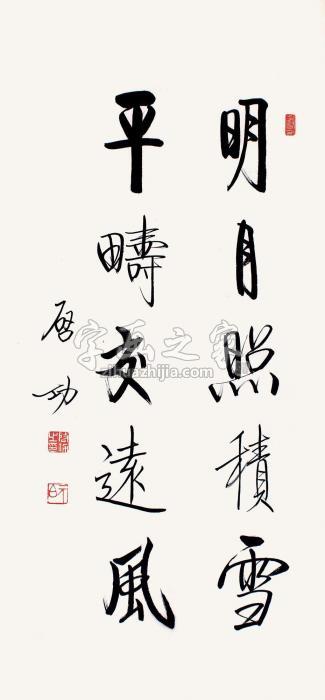 明月照積雪
平疇交遠風
启功
字画之家
zihuazhijia.com